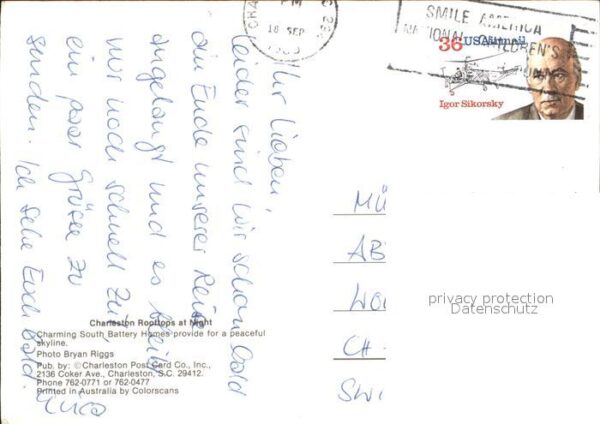 Ihr Lieben,
leider sind wir schon bald
am Ende unserer Reise
angelangt und es bleibt
nur noch schnell Zeit,
ein paar Grüsse zu
senden. Ich sehe Euch bald.
PM
16 SEP
SMILE AMERICA
NATIONAL CHILDREN'S
36 USAirmail
Igor Sikorsky
MÜ
AB
WO
CH-
SWI
privacy protection
Datenschutz
Charleston Rooftops at Night
Charming South Battery Homes provide for a peaceful
skyline.
Photo Bryan Riggs
Pub. by: ©Charleston Post Card Co., Inc.,
2136 Coker Ave., Charleston, S.C. 29412.
Phone 762-0771 or 762-0477
Printed in Australia by Colorscans